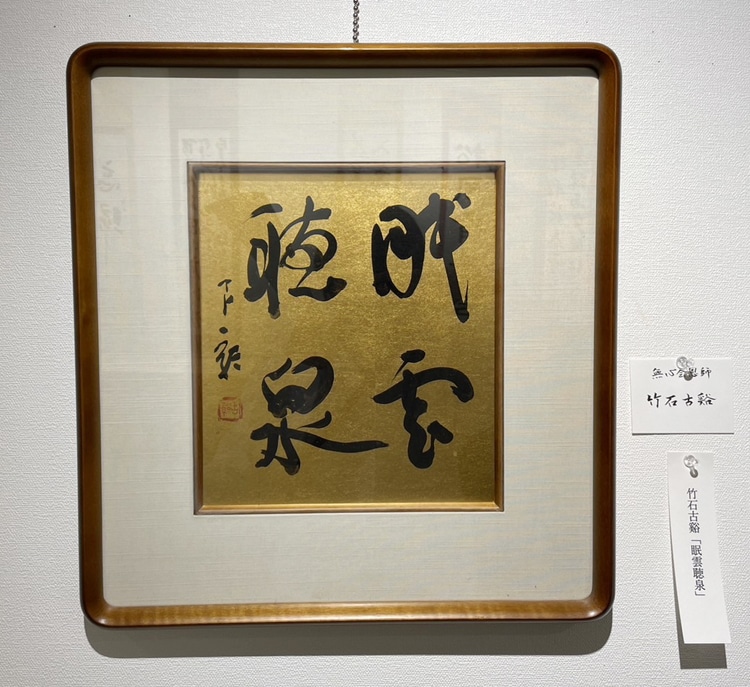 眠雲
聴泉
竹石古谿
竹石古谿「眠雲聴泉」